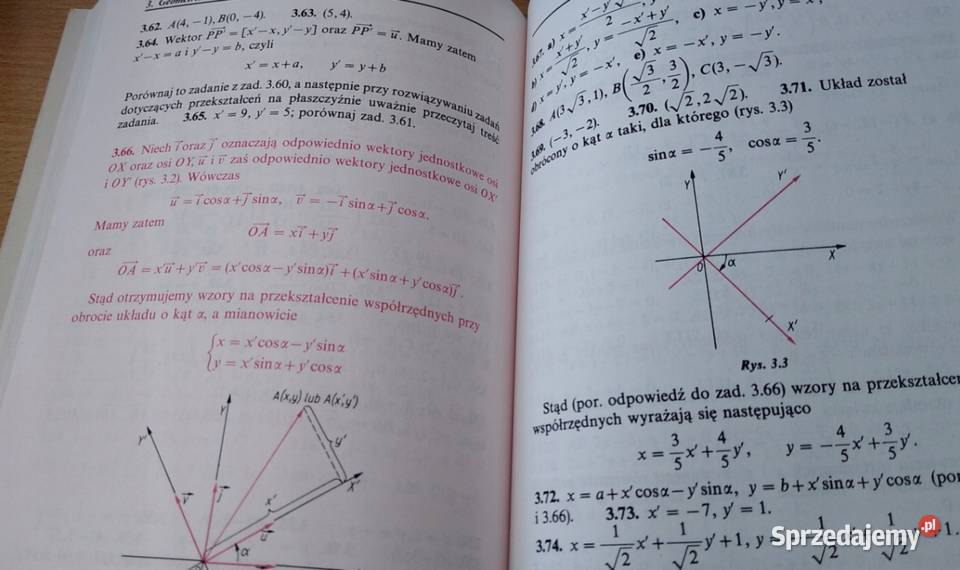 3. Geometr
3.62. A(4, −1), B(0, −4). 3.63. (5, 4).
3.64. Wektor PP' = [x'−x, y'−y] oraz PP' = u. Mamy zatem
x'−x = a i y'−y = b, czyli
x' = x+a, y' = y+b
Porównaj to zadanie z zad. 3.60, a następnie przy rozwiązywaniu zadań
dotyczących przekształceń na płaszczyźnie uważnie przeczytaj treść
zadania. 3.65. x' = 9, y' = 5; porównaj zad. 3.61.
3.66. Niech i oraz j oznaczają odpowiednio wektory jednostkowe osi
OX oraz osi OY, u i v zaś odpowiednio wektory jednostkowe osi OX'
i OY' (rys. 3.2). Wówczas
u = i cosα + j sinα, v = −i sinα + j cosα.
Mamy zatem
OA = xi + yj
oraz
OA = x'u + y'v = (x'cosα − y'sinα)i + (x'sinα + y'cosα)j.
Stąd otrzymujemy wzory na przekształcenie współrzędnych przy
obrocie układu o kąt α, a mianowicie
{x = x'cosα − y'sinα
{y = x'sinα + y'cosα
A(x,y) lub A(x',y')
Y' Y
y'
x' X'
v j
u
α
3.67. a) x = x'−y'/√2, y = x'+y'/√2
b) x = x'+y'/√2, y = −x'+y'/√2, c) x = −y', y = x',
d) x = y', y = −x', e) x = −x', y = −y'.
3.68. A(3√3, 1), B(√3/2, 3/2), C(3, −√3).
3.69. (−3, −2). 3.70. (√2, 2√2). 3.71. Układ został
obrócony o kąt α taki, dla którego (rys. 3.3)
sinα = −4/5, cosα = 3/5.
Y Y'
0 α X
X'
Rys. 3.3
Stąd (por. odpowiedź do zad. 3.66) wzory na przekształcen
współrzędnych wyrażają się następująco
x = 3/5 x' + 4/5 y', y = −4/5 x' + 3/5 y'.
3.72. x = a + x'cosα − y'sinα, y = b + x'sinα + y'cosα (por
i 3.66). 3.73. x' = −7, y' = 1.
3.74. x = 1/√2 x' + 1/√2 y' + 1, y = 1/√2 1/√2 y' + 1.
Sprzedajemy.pl